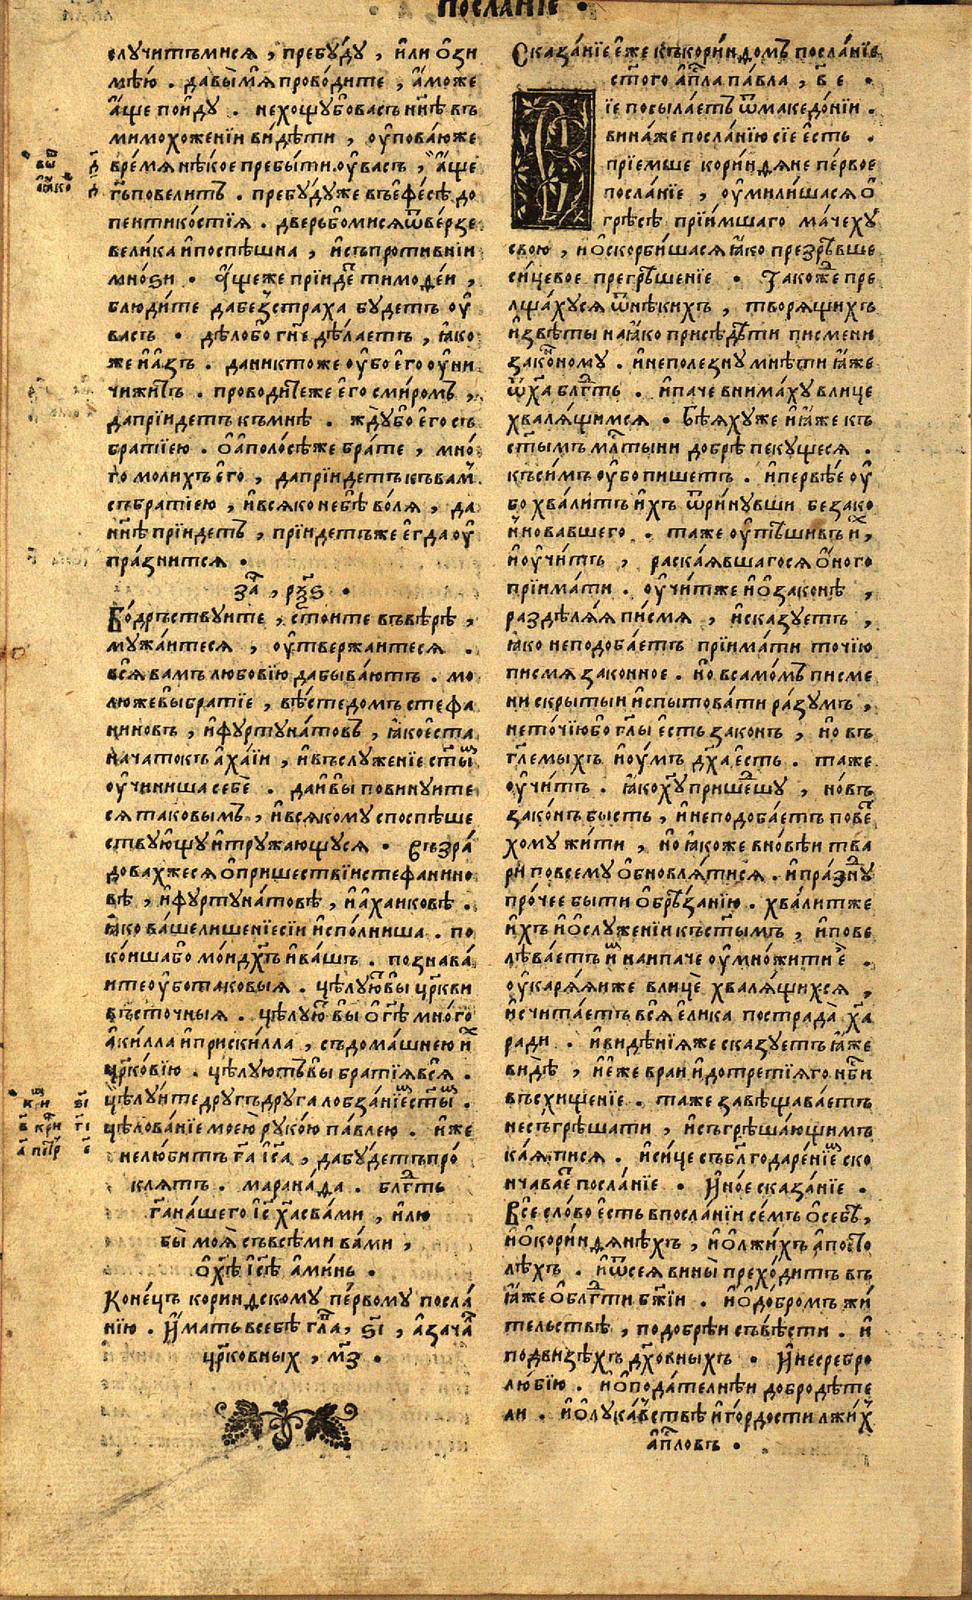 ПОСЛАНІЕ •
слꙋчитъмисѧ , пребꙋ́дꙋ , и҆ли ѻ҆зи
мѣ́ю . давы̀мѧ̀ прово́дите , а҆́може
а҆́ще пои҆́дꙋ . нехощꙋбовасъ нн҃ѣ въ
мимохоженїи ви́дѣти , оу҆пова́юже
вре́мѧ нѣ́кое пребы́ти оу҆ васъ , а҆́ще
гь҃повелитъ . пребꙋ́дꙋже въ є҆фе́сѣ до
пентико́стїѧ . две́рь бо мисѧ ѿве́рзе
вели́ка и҆поспѣ́шна , и҆съпроти́внїи
мно́ѕи • А҆́щеже прїи́детъ тимоѳе́и ,
блюди́те дабез̾стра́ха бꙋ́детъ оу҆
ва́съ • дѣ́лобо гн҃е дѣ́лаетъ , ꙗ҆́ко
же и҆а҆́зъ . даникто́же оу҆́бо є҆го̀ оу҆ни
чижи́тъ . проводи́теже є҆го̀ сми́ромъ ,
дапрїи́детъ къмнѣ̀ . ждꙋ́бо є҆го̀ съ
бра́тїею . Ѻ҆ а҆поло́сѣже бра́те , мно́
го моли́хъ є҆го̀ , дапрїи́детъ къва́мъ
събра́тїею , и҆всѧ́ко небѣ̀ во́лѧ , да
нн҃ѣ прїи́детъ , прїи́детъже є҆гда̀ оу҆
пра́знитсѧ •
за҃ , рѯ҃ѕ •
Бо́дрьствꙋите , сто́ите въвѣ́рѣ ,
мꙋжа́итесѧ , оу҆твержа́итесѧ .
всѧ̀ ва́мъ любо́вїю дабыва́ютъ . мо
лю́же вы̀ бра́тїе , вѣ́сте до́мъ стефа
ни́новъ , и҆фꙋртꙋна́товъ , ꙗ҆́ко є҆́сть
нача́токъ а҆ха́їи , и҆въслꙋже́нїе ст҃ы́мъ
оу҆чини́ша себѐ . даи҆вы̀ повинꙋ́ите
сѧ таковы́мъ , и҆всѧ́комꙋ споспѣ́ше
ствꙋющꙋ и҆трꙋжа́ющꙋсѧ • Съзра́
довахжесѧ ѻ҆прише́ствїи стефани́но
вѣ , и҆фꙋртꙋна́товѣ , и҆а҆ха́иковѣ .
ꙗ҆́ко ва́ше лише́нїе сїѝ и҆спо́лниша . по
ко́иша бо мо́и дх҃ъ и҆ва́шъ . познава́
ите оу҆́бо таковы́ѧ . цѣлꙋ́ютъ вы̀ цр҃кви
въсто́чныѧ . цѣлꙋ́ютъ вы̀ ѻ҆гд҃ѣ мно́го
а҆ки́лла и҆приски́лла , съдома́шнею и҆́хъ
цр҃ковїю . цѣлꙋ́ютъ вы̀ бра́тїѧ всѧ̀ .
цѣлꙋ́ите дрꙋ́гъ дрꙋ́га лобза́нїемъ ст҃ы́мъ .
цѣлова́нїе мое́ю рꙋко́ю па́влею . и҆́же
нелю́битъ га҃ і҆са҃ , дабꙋ́детъ про́
клѧтъ . марана́ѳа . блг҃дть
га҃ на́шего і҆с҃ ха҃ сва́ми , и҆лю
бы̀ моѧ̀ съвсѣ́ми ва́ми ,
ѻ҆хѣ҃ і҆сѣ҃ а҆ми́нь •
Коне́цъ кори́нѳскомꙋ пе́рвомꙋ посла́
нїю . И҆́мать всебѣ̀ гла҃, ѕ҃і , а҆зача́лъ
цр҃ковныхъ , м҃з •
Сказа́нїе є҆́же къкори́нѳомъ посла́нїе
ст҃о́го а҆пл҃а па́вла , в҃ е •
Сїе посыла́етъ ѿмакедо́нїи .
вина́же посла́нїю сїе є҆́сть .
прїе́мше кори́нѳѧне пе́рвое
посла́нїе , оу҆мили́шасѧ ѻ҆
грѣ́сѣ прїи́мшаго ма́чехꙋ
свою , и҆ѻ҆скорби́шасѧ ꙗ҆́ко презрѣ́вше
си́цевое прегрѣше́нїе • Та́коже пре
лща́хꙋсѧ ѿнѣ́кихъ , творѧ́щихъ
и҆звѣ́ты и҆ꙗ҆́ко присѣдѣ́ти пи́смени
зако́нномꙋ . и҆неполе́знꙋ мнѣ́ти ꙗ҆́же
ѿха҃ блг҃дть . и҆па́че внима́хꙋ влицѐ
хвалѧ́щимсѧ • Бѣ́ѧхꙋже и҆ꙗ҆́же къ
ст҃ы́мъ мл҃тыни до́брѣ пекꙋ́щесѧ .
къси́мъ оу҆́бо пи́шетъ . и҆пе́рвѣе оу҆́
бо хва́литъ и҆́хъ ѿри́нꙋвши безако
нновавшего . та́же оу҆тѣ́шивъ и҆́хъ ,
и҆оу҆чи́тъ , раска́ѧвшагосѧ ѻ҆́ного
прїима́ти . оу҆чи́тже и҆ѻ҆зако́нѣ ,
раздѣлѧ́ѧ пи́смѧ , и҆ска́зꙋетъ ,
ꙗ҆́ко неподоба́етъ прїима́ти то́чїю
пи́смѧ зако́нное . но̀ всамо́мъ пи́сме
ни скры́тыи и҆спытова́ти ра́зꙋмъ ,
нето́чїюбо гл҃ы є҆́сть зако́нъ , но̀ въ
гл҃емыхъ и҆оу҆́мъ дх҃а є҆́сть . та́же
оу҆чи́тъ . ꙗ҆́ко хꙋ҃ прише́дшꙋ , но́въ
зако́нъ бы́сть , и҆неподоба́етъ пове́т
хомꙋ жи́ти , но̀ ꙗ҆́коже вно́вѣи тва́
ри повсемꙋ̀ ѻ҆бновлѧ́тисѧ . и҆пра́знꙋ
про́чее бы́ти ѻ҆брѣ́занїю . хва́литже
и҆́хъ и҆ѻ҆слꙋже́нїи къст҃ы́мъ , и҆пове
лѣва́етъ и҆́мъ наипа́че оу҆мно́жити є҆̀ .
оу҆карѧ́ѧ и҆́же влицѐ хвалѧ́щихсѧ ,
и҆счита́етъ всѧ̀ є҆ли́ка пострада̀ ха҃
ра́ди . и҆видѣ́нїѧже ска́зꙋетъ ꙗ҆́же
ви́дѣ , и҆є҆́же вра́и и҆дотре́тїѧго нб҃си
въсхище́нїе . та́же завѣщава́етъ
несъгрѣша́ти , и҆съгрѣша́ющимъ
ка́ѧтисѧ . и҆си́це събл҃годаре́нїемъ ско
нчава́етъ посла́нїе • И҆но́е сказа́нїе .
Все сло́во є҆́сть впосла́нїи се́мъ ѻ҆себѣ̀ ,
и҆ѻ҆кори́нѳѧнѣхъ , и҆ѻ҆лжи́хъ а҆по́сто
лѣхъ . и҆ѿсеѧ̀ вины̀ прехо́дитъ въ
ꙗ҆́же ѻ҆блг҃дти бж҃їи . и҆ѻ҆до́бромъ жи́
тельствѣ , подо́брѣи съвѣ́сти . и҆
подвизѣ́хъ дх҃о́вныхъ • И҆несребро
лю́бїю . и҆ѻ҆пода́телнѣи добродѣ́те
ли . и҆ѻ҆лꙋка́вствѣ и҆го́рдости лжи́хъ
а҆пл҃овъ •